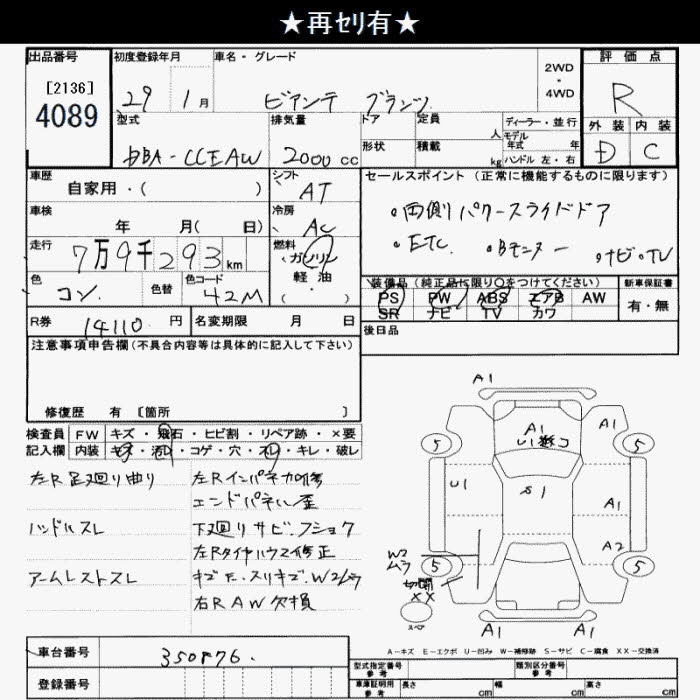 ★再ｾﾘ有★
出品番号 初度登録年月 車名・グレード 2WD・4WD 評価点
[2136]
4089
29 1月 ビアンテ グランツ R
型式 排気量 ドア 定員 人 ディーラー・並行 外装 内装
DBA-CCEAW 2000cc 形状 積載 kg モデル年式 年 D C
ハンドル 左・右
車歴 シフト セールスポイント (正常に機能するものに限ります)
自家用・( ) AT
・両側パワースライドドア
車検 冷房
年 月( 日) AC
・ETC ・Bモニター ・ナビ・TV
走行 燃料
7万9千293km ガソリン
軽油
( )
装備品 (純正品に限り○をつけてください) 新車保証書
色 色替 色コード
コン. 42M
PS PW ABS エアB AW 有・無
SR ナビ TV カワ
R券 14110円 名変期限 月 日 後日品
注意事項申告欄 (不具合内容等は具体的に記入して下さい)
修復歴 有 [箇所 ]
検査員 FW キズ・飛石・ヒビ割・リペア跡・×要
記入欄 内装 キズ・汚れ・コゲ・穴・スレ・キレ・破レ
左R足廻り曲り 左Rインパネ加修
エンドパネル歪
ハンドルスレ 下廻りサビ.フショク
左Rタイヤハウス修正
アームレストスレ キズ スリキズ.W2ムラ
右RAW欠損
A1
A1 A1
5 5
U1 S1 A1
W2 ムラ A2
5 5
切開
XX
スペア A1 A1
A-キズ E-エクボ U-凹み W-補修跡 S-サビ C-腐食 XX-交換済
車台番号 350876.
登録番号
型式指定番号 参考 類別区分番号 参考
車庫証明用 参考 長さ cm 幅 cm 高さ cm